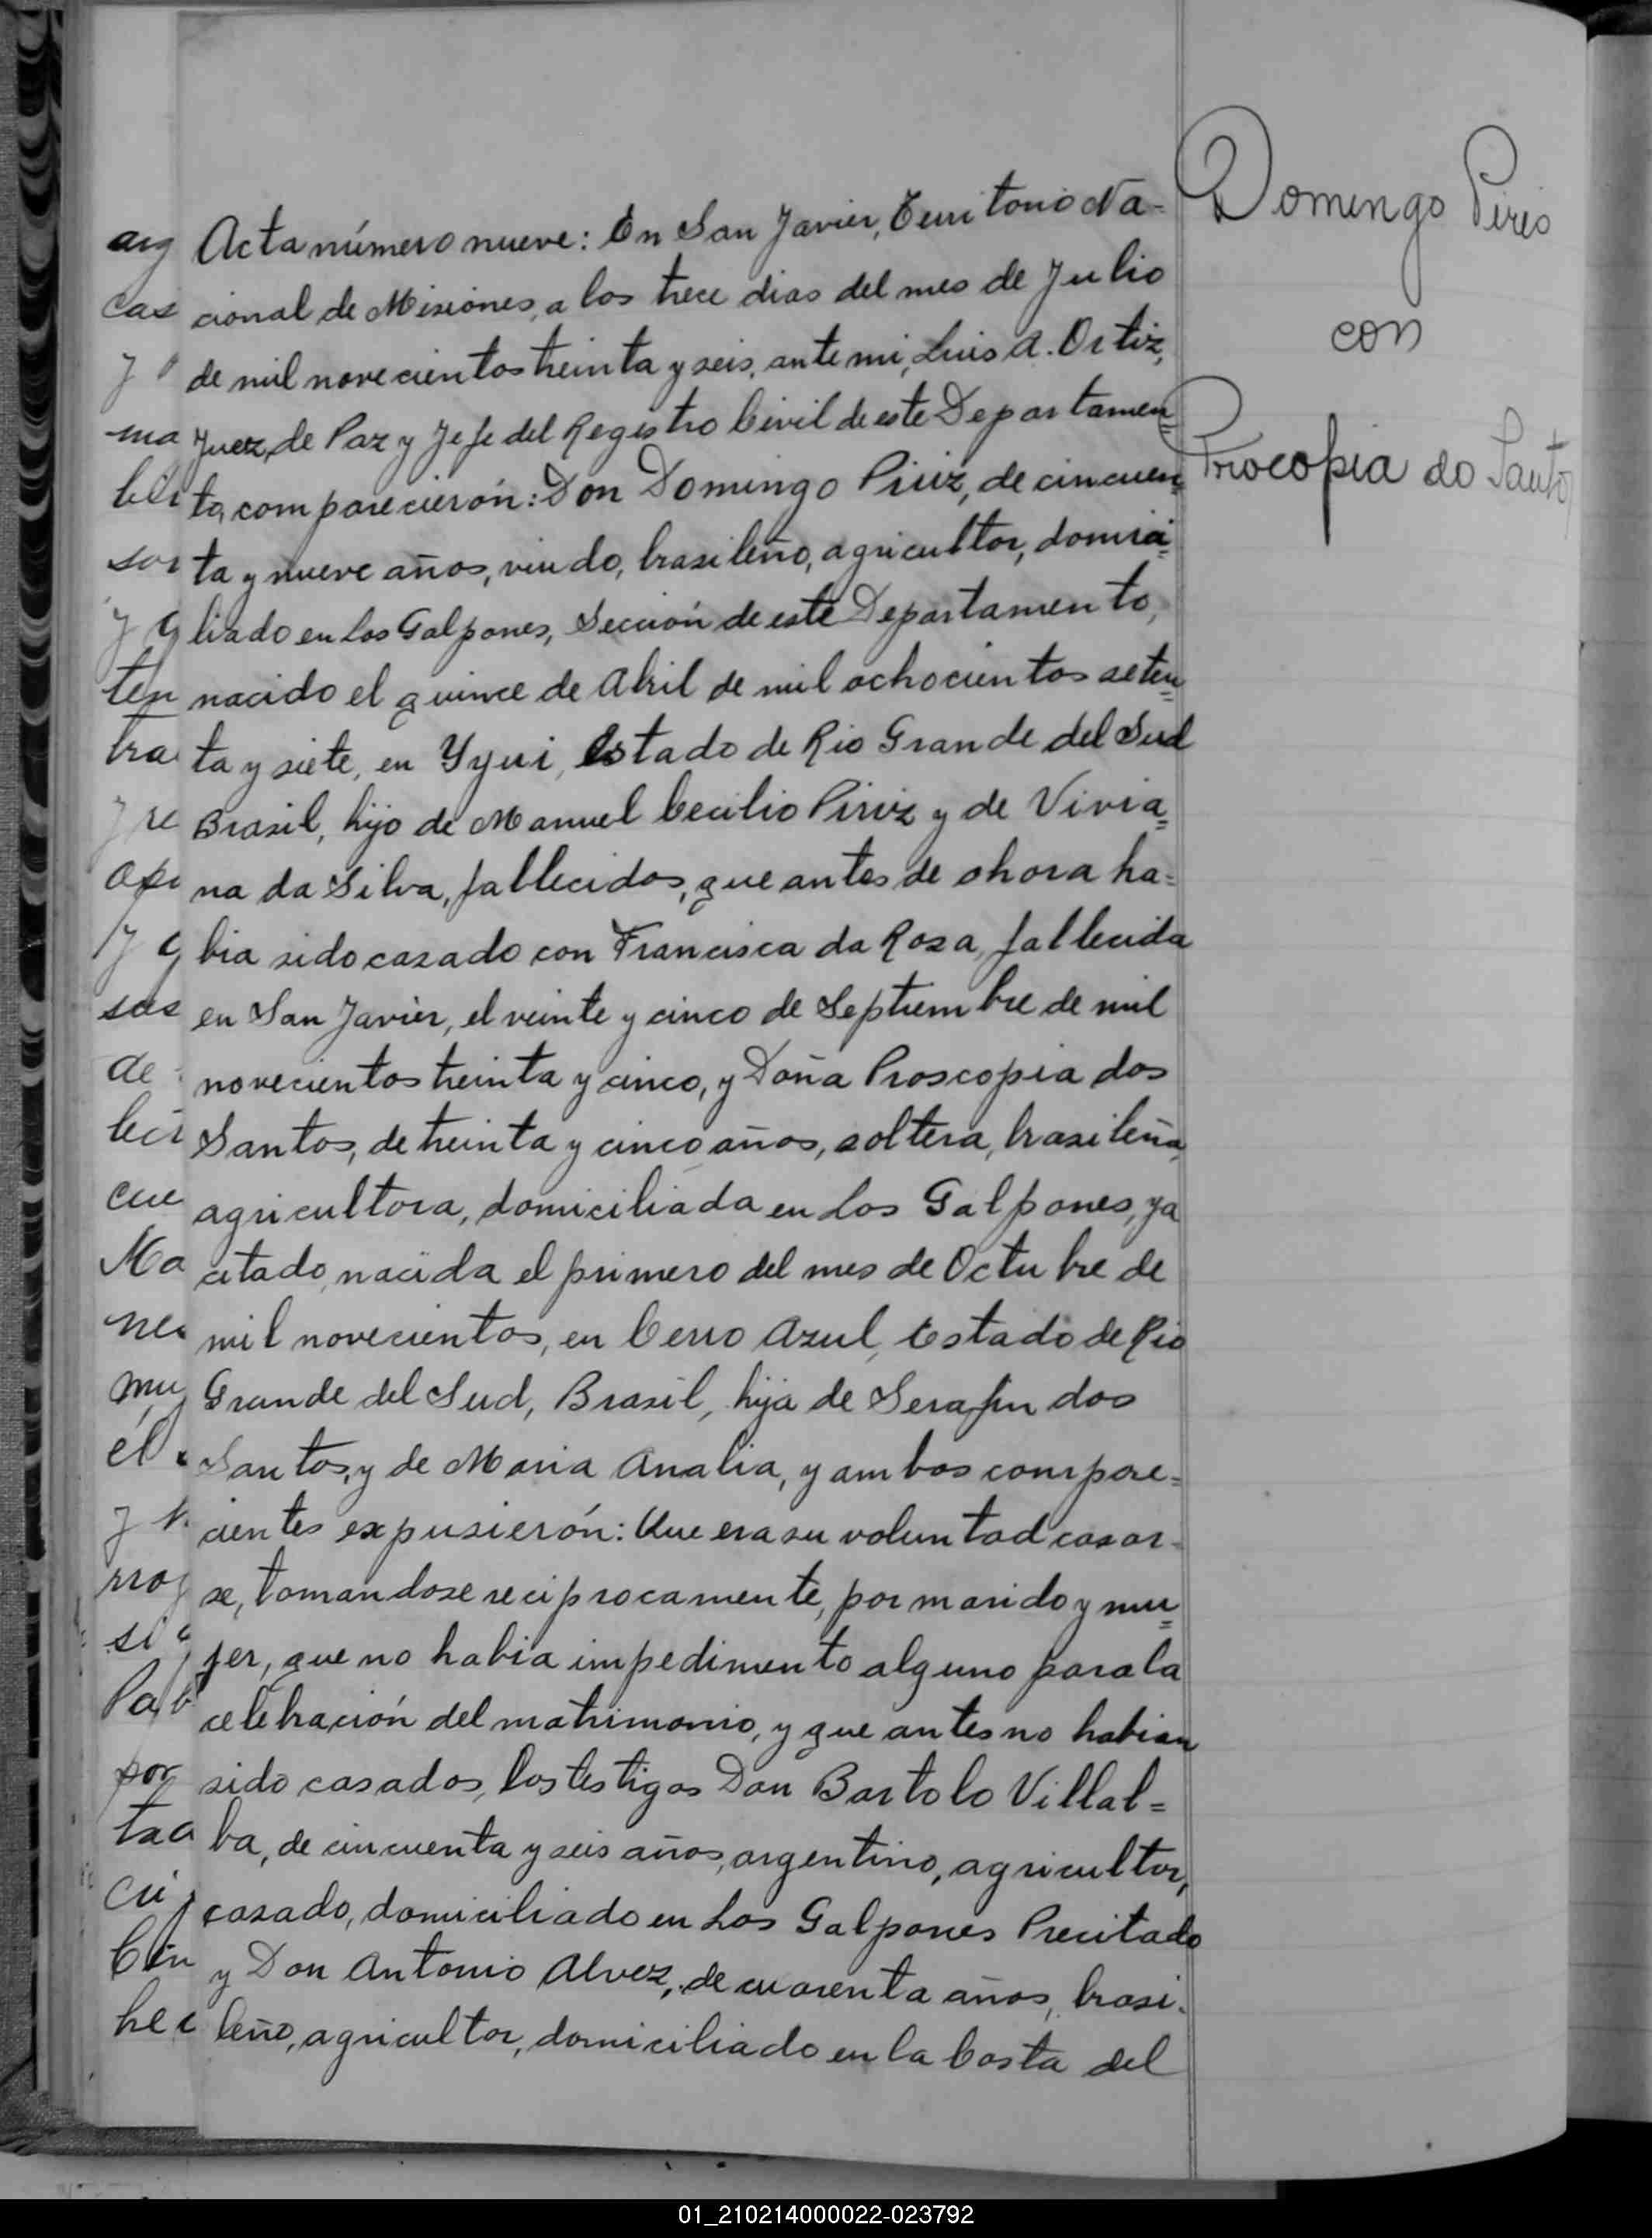 Domingo Pires
con
Procopia do Santo
Acta número nueve: En San Javier, Territorio Na-
cional de Misiones, a los trece dias del mes de Julio
de mil novecientos treinta y seis, ante mi, Luis A. Ortiz,
Juez, de Paz y Jefe del Registro Civil de este Departamen=
to, comparecierón: Don Domingo Piriz, de cincuen=
ta y nueve años, viudo, brasileño, agricultor, domici=
liado en Los Galpones, Sección de este Departamento,
nacido el quince de Abril de mil ochocientos seten=
ta y siete, en Yjui, Estado de Rio Grande del Sud
Brasil, hijo de Manuel Cecilio Piriz y de Vivia=
na da Silva, fallecidos, que antes de ahora ha=
bia sido casado con Francisca da Rosa, fallecida
en San Javier, el veinte y cinco de Septiembre de mil
novecientos treinta y cinco, y Doña Proscopia dos
Santos, de treinta y cinco años, soltera, brasileña,
agricultora, domiciliada en Los Galpones, ya
citado, nacida el primero del mes de Octubre de
mil novecientos, en Cerro Azul, Estado de Rio
Grande del Sud, Brasil, hija de Serafin dos
Santos, y de Maria Analia, y ambos compare=
cientes expusierón: Que era su voluntad casar-
se, tomandose reciprocamente, por marido y mu=
jer, que no habia impedimento alguno para la
celebración del matrimonio, y que antes no habian
sido casados, los testigos Don Bartolo Villal=
ba, de cincuenta y seis años, argentino, agricultor,
casado, domiciliado en Los Galpones Precitado
y Don Antonio Alvez, de cuarenta años, brasi-
leño, agricultor, domiciliado en la Costa del
01_210214000022-023792